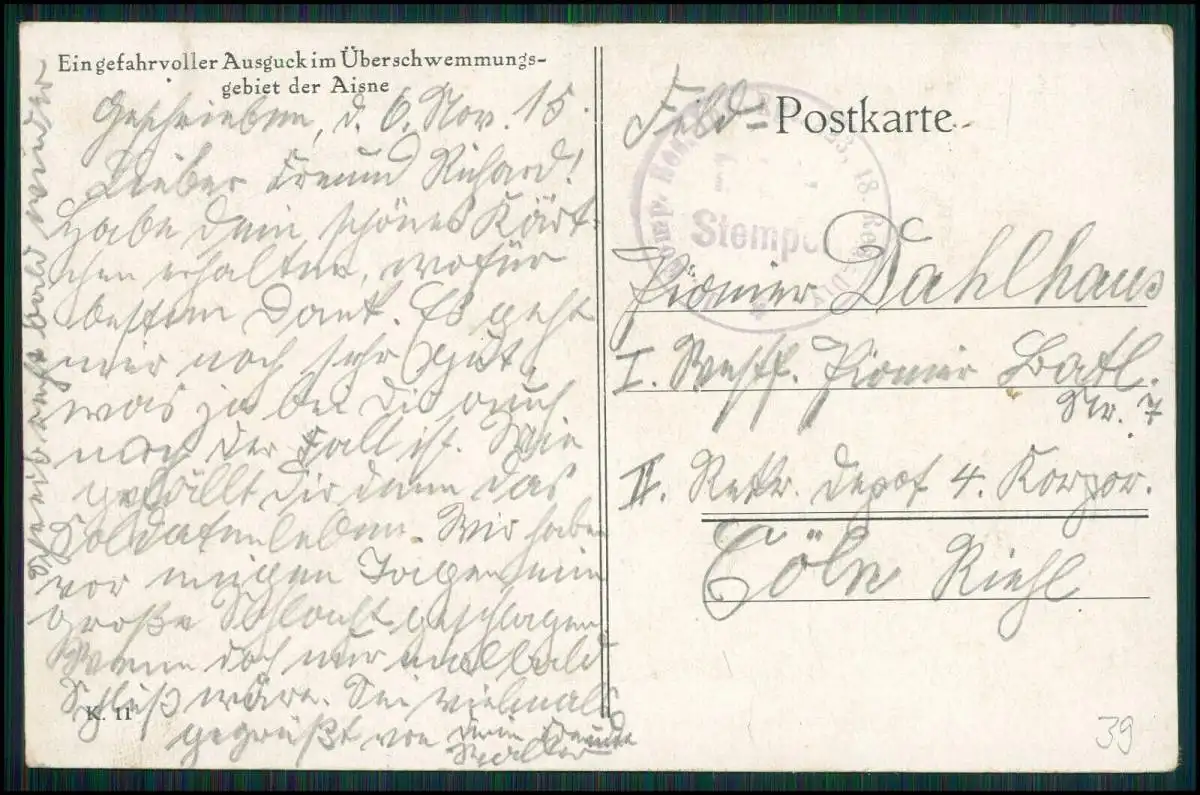 Ein gefahrvoller Ausguck im Überschwemmungs-
gebiet der Aisne
Geschrieben, d. 6. Nov. 15.
Lieber Freund Richard!
Habe dein schönes Kärt-
chen erhalten, wofür
besten Dank. Es geht
mir noch sehr gut,
was ja bei dir auch
noch der Fall ist. Wie
gefällt dir denn das
Soldatenleben. Wir haben
vor einigen Tagen eine
große Schlacht geschlagen
Wenn doch nur mal bald
Schluß wäre. Sei vielmals
gegrüßt von dein Freund
Walter
Schreib recht bald wieder
K. 11
Feld-Postkarte
Komp. Res. 18. Res.-Div.
Stempel
Pionier Dahlhaus
I. Westf. Pionier Batl.
Nr. 7
II. Rekr. Depot 4. Korpor.
Cöln Riehl
39